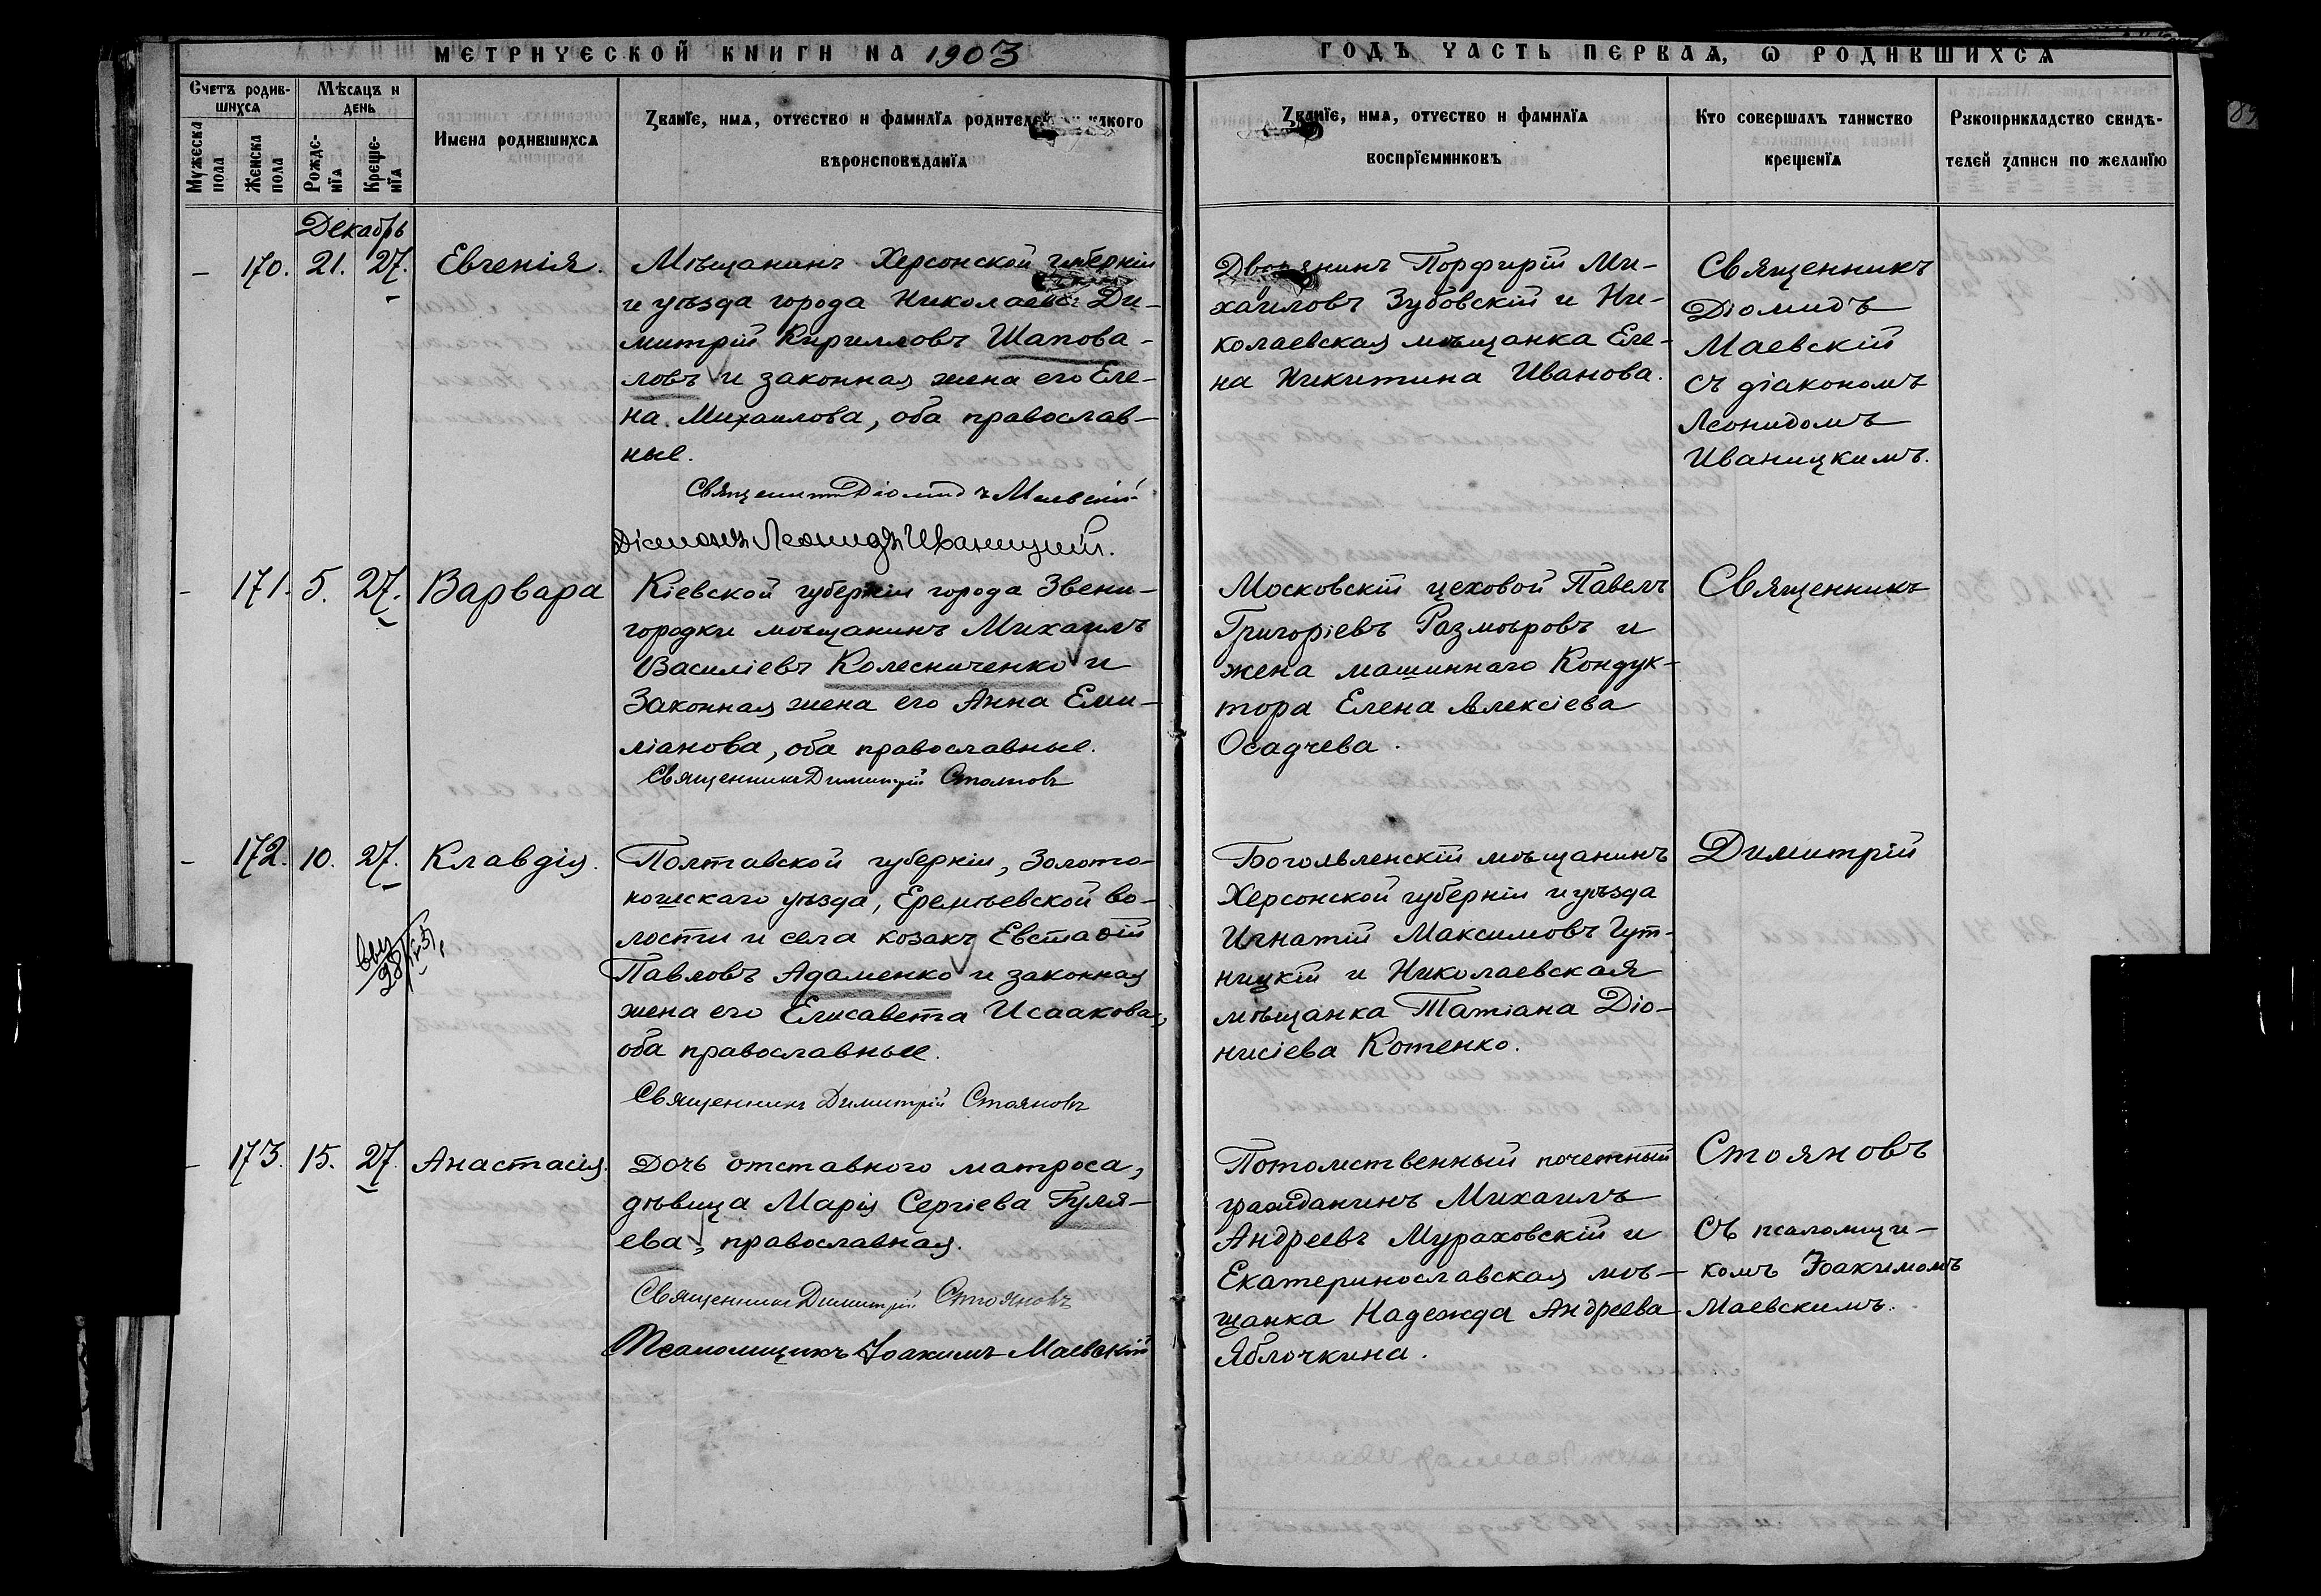 МЕТРИЧЕСКОЙ КНИГИ НА 1903
ГОДЪ ЧАСТЬ ПЕРВАЯ, Ѡ РОДИВШИХСЯ
Счетъ родив-
шихся
Мужеска
пола
Женска
пола
Мѣсяцъ и
день
Рожде-
нїя
Креще-
нїя
Имена родившихся
Званїе, имя, отчество и фамилїя родителей какого
вѣроисповѣданїя
Званїе, имя, отчество и фамилїя
воспрїемниковъ
Кто совершалъ таинство
крещенїя
Рукоприкладство свидѣ-
телей записи по желанїю
Декабрь
– 170. 21. 27. Евгенія.
Мѣщанинъ Херсонской губерніи
и уѣзда города Николаева Ди-
митрій Кирилловъ Шапова-
ловъ и законная жена его Еле-
на Михаилова, оба православ-
ные.
Священникъ Діомидъ Маевскій
Діаконъ Леонидъ Иваницкій.
Дворянинъ Порфирій Ми-
хаиловъ Зубовскій и Ни-
колаевская мѣщанка Еле-
на Никитина Иванова.
Священникъ
Діомидъ
Маевскій
съ діакономъ
Леонидомъ
Иваницкимъ.
– 171. 5. 27. Варвара
Кіевской губерніи города Звени-
городки мѣщанинъ Михаилъ
Василіевъ Колесниченко и
Законная жена его Анна Еми-
ліанова, оба православные.
Священникъ Димитрій Стояновъ
Московскій цеховой Павелъ
Григоріевъ Размѣровъ и
жена машиннаго Кондук-
тора Елена Алексіева
Осадчева.
Священникъ
– 172. 10. 27. Клавдія.
Полтавской губерніи, Золото-
ношскаго уѣзда, Еремѣевской во-
лости и села козакъ Евстафій
Павловъ Адаменко и законная
жена его Елисавета Исаакова,
оба православные.
Священникъ Димитрій Стояновъ
Богоявленскій мѣщанинъ
Херсонской губерніи и уѣзда
Игнатій Максимовъ Гут-
ницкій и Николаевская
мѣщанка Татіана Діо-
нисіева Котенко.
Димитрій
– 173. 15. 27. Анастасія.
Дочь отставного матроса,
дѣвица Марія Сергіева Гуля-
ева, православная.
Священникъ Димитрій Стояновъ
Псаломщикъ Іоакимъ Маевскій
Потомственный почетный
гражданинъ Михаилъ
Андреевъ Мураховскій и
Екатеринославская мѣ-
щанка Надежда Андреева
Яблочкина.
Стояновъ
съ псаломщи-
комъ Іоакимомъ
Маевскимъ.